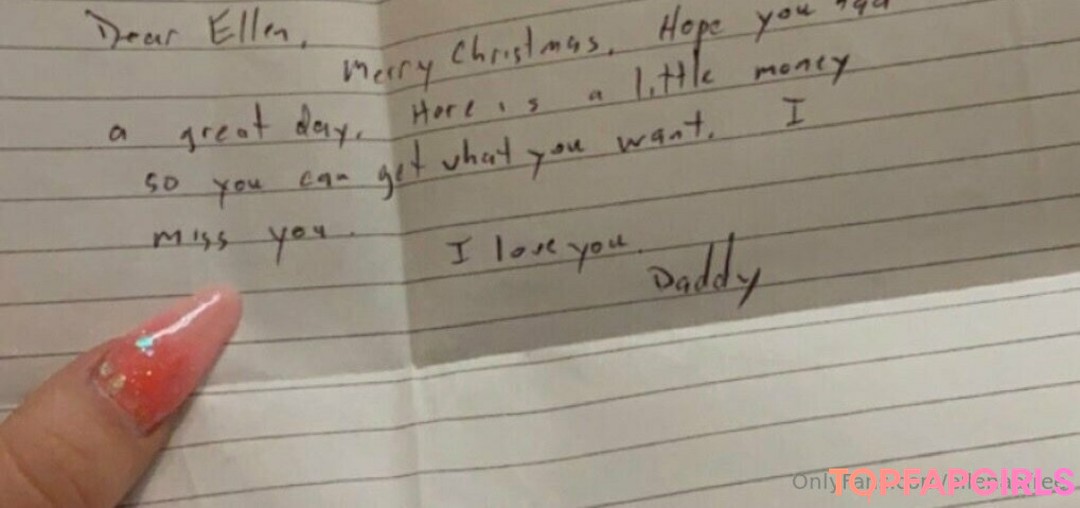 Dear Ellen,
Merry Christmas. Hope you had
a great day. Here is a little money
so you can get what you want. I
miss you.
I love you.
Daddy
TOPFAPGIRLS